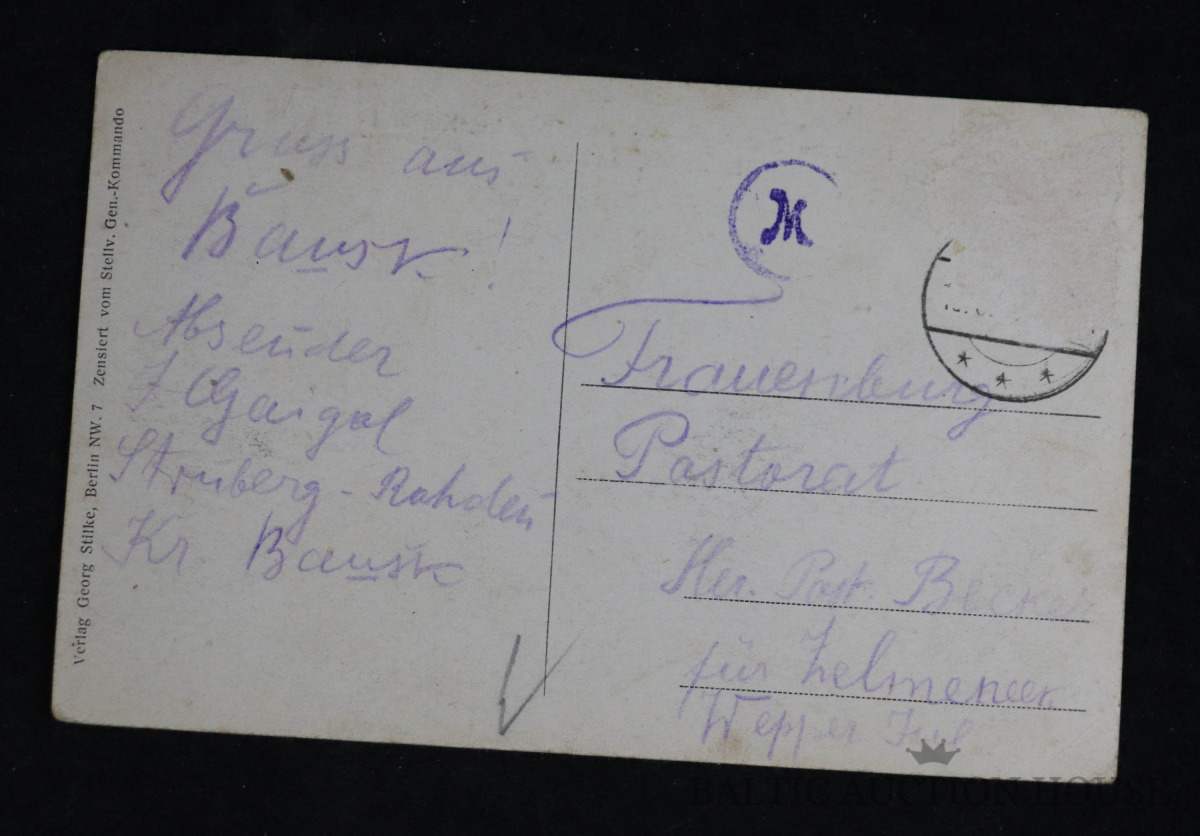 Verlag Georg Stilke, Berlin NW. 7 Zensiert vom Stellv. Gen.-Kommando
Gruss aus
Bausk!
Absender
J Gaigal
Struberg-Rahden
Kr. Bausk
M
Frauenburg
Pastorat
Her. Past. Becker
für
Wepper
BALTIC AUCTION HOUSE